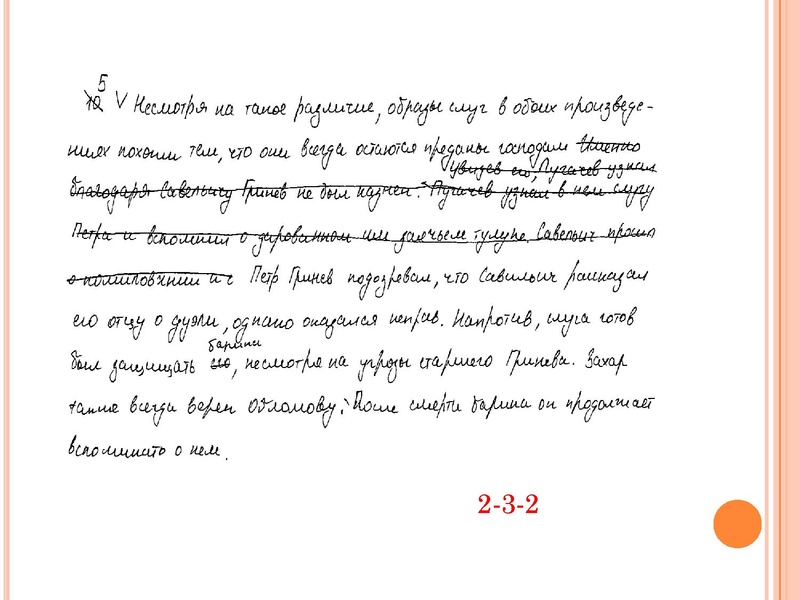 5
10 V Несмотря на такое различие, образы слуг в обоих произведе-
ниях похожи тем, что они всегда остаются преданы господам Именно
увидев его, Пугачев узнал
благодаря Савельичу Гринев не был казнен. Пугачев узнал в нем слугу
Петра и вспомнил о дарованном им заячьем тулупе. Савельич просил
о помиловании и с Петр Гринев подозревал, что Савильич рассказал
его отцу о дуэли, однако оказался неправ. Напротив, слуга готов
барина
был защищать его, несмотря на угрозы старшего Гринева. Захар
также всегда верен Обломову. После смерти барина он продолжает
вспоминать о нем.
2-3-2